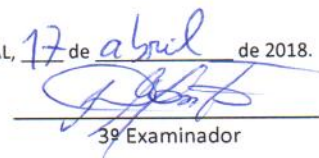 AL, 17 de abril de 2018.
3º Examinador